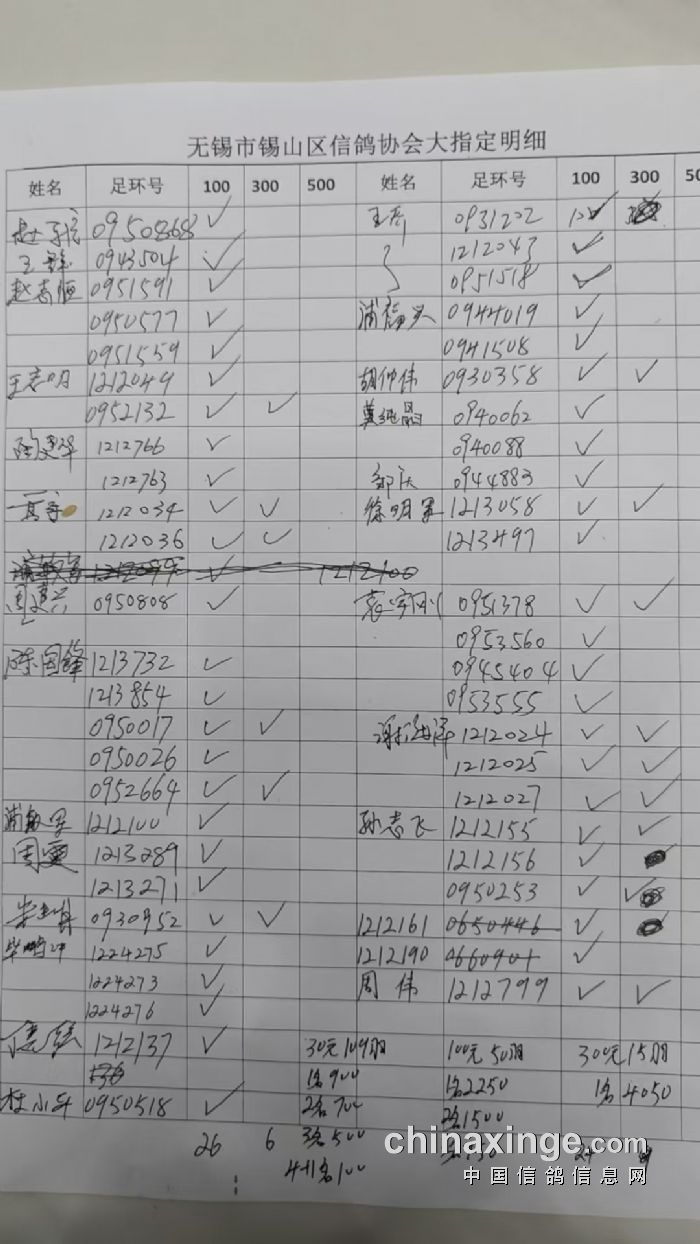 无锡市锡山区信鸽协会大指定明细
姓名 足环号 100 300 500 姓名 足环号 100 300
0950868 ✓ 王 0931202
王 0943504 ✓ 1212043 ✓
赵志恒 0951591 ✓ 0951518 ✓
0950577 ✓ 浦福兴 0944019 ✓
0951559 ✓ 0941508 ✓
王志明 1212049 ✓ 胡仲伟 0930358 ✓ ✓
0952132 ✓ ✓ 莫纯 0940062 ✓
陶建华 1212766 ✓ 0940088 ✓
1212763 ✓ 邹 0944883 ✓
1212034 ✓ ✓ 徐明军 1213058 ✓ ✓
1212036 ✓ ✓ 1213497 ✓
1212100
周建兴 0950808 ✓ 袁宇刚 0951378 ✓ ✓
0953560 ✓
陈国锋 1213732 ✓ 0945404 ✓
1213854 ✓ 0953555 ✓
0950017 ✓ ✓ 1212024 ✓ ✓
0950026 ✓ 1212025 ✓ ✓
0952664 ✓ ✓ 1212027 ✓ ✓
浦敏军 1212100 ✓ 孙志飞 1212155 ✓ ✓
周 1213289 ✓ 1212156 ✓
1213271 ✓ 0950253 ✓
0930952 ✓ ✓ 1212161 0650446 ✓
1224275 ✓ 1212190 0660901 ✓
1224273 ✓ 周伟 1212799 ✓ ✓
1224276 ✓
1212137 ✓ 30元109羽 100元50羽 300元15羽
1名900 1名2250 1名4050
杜小平 0950518 ✓ 2名700 2名1500
26 6 3名500
4-11名100
chinaxinge.com
中国信鸽信息网